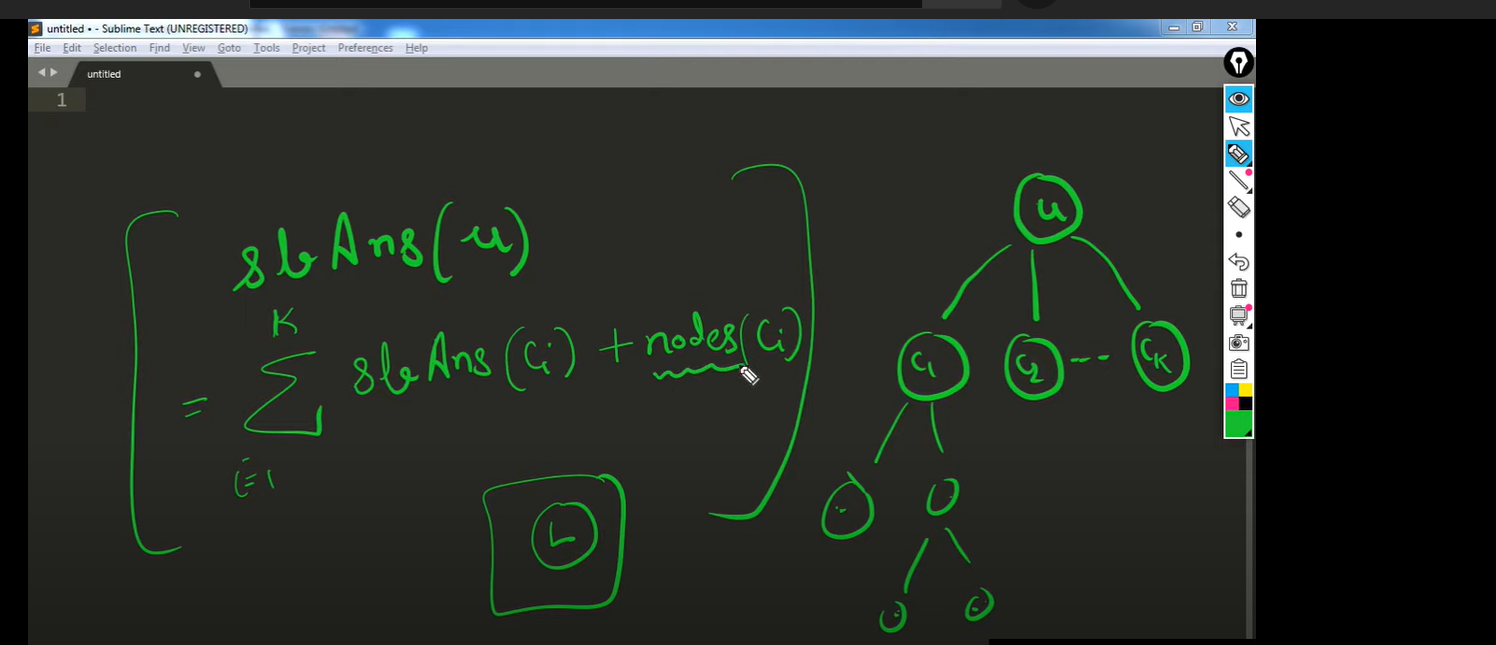 untitled • - Sublime Text (UNREGISTERED)
File Edit Selection Find View Goto Tools Project Preferences Help
untitled
1
sbAns(u)
= K Σ i=1 sbAns(Ci) + nodes(Ci)
L
u
C1 C2 --- CK